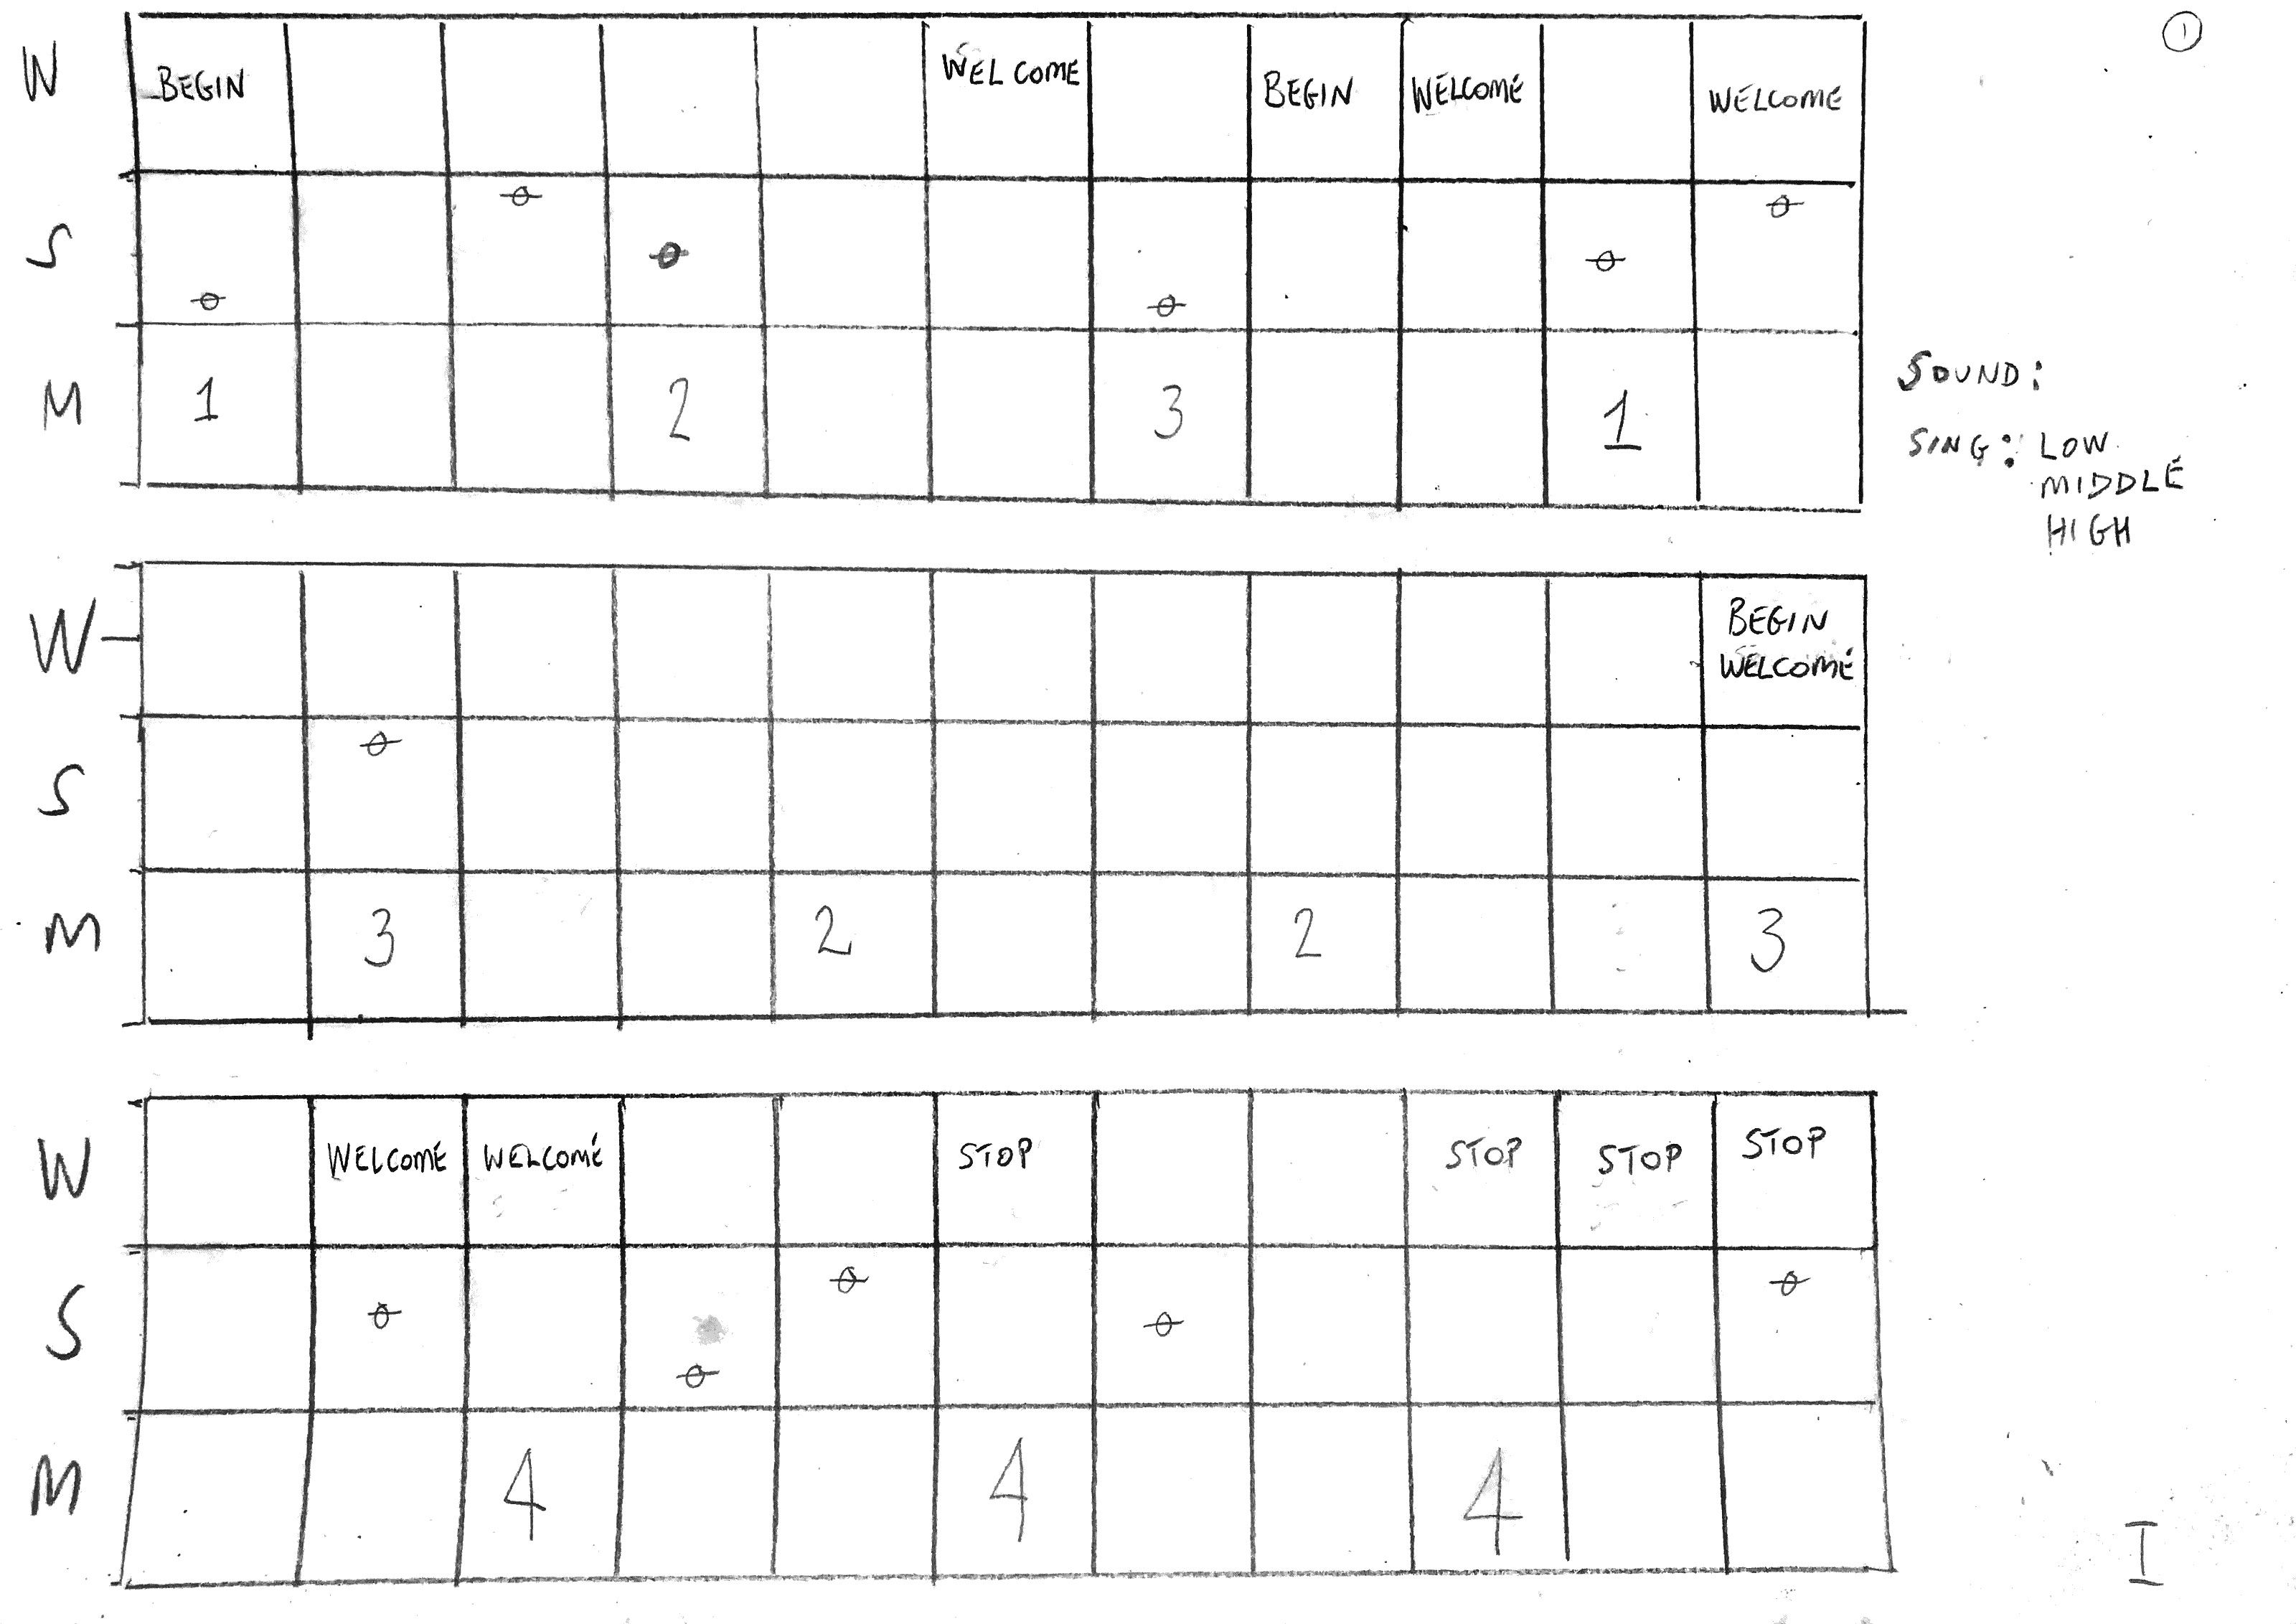 ①
W BEGIN WELCOME BEGIN WELCOME WELCOME
S
M 1 2 3 1
SOUND:
SING: LOW
MIDDLE
HIGH
W BEGIN
WELCOME
S
M 3 2 2 3
W WELCOME WELCOME STOP STOP STOP STOP
S
M 4 4 4
I